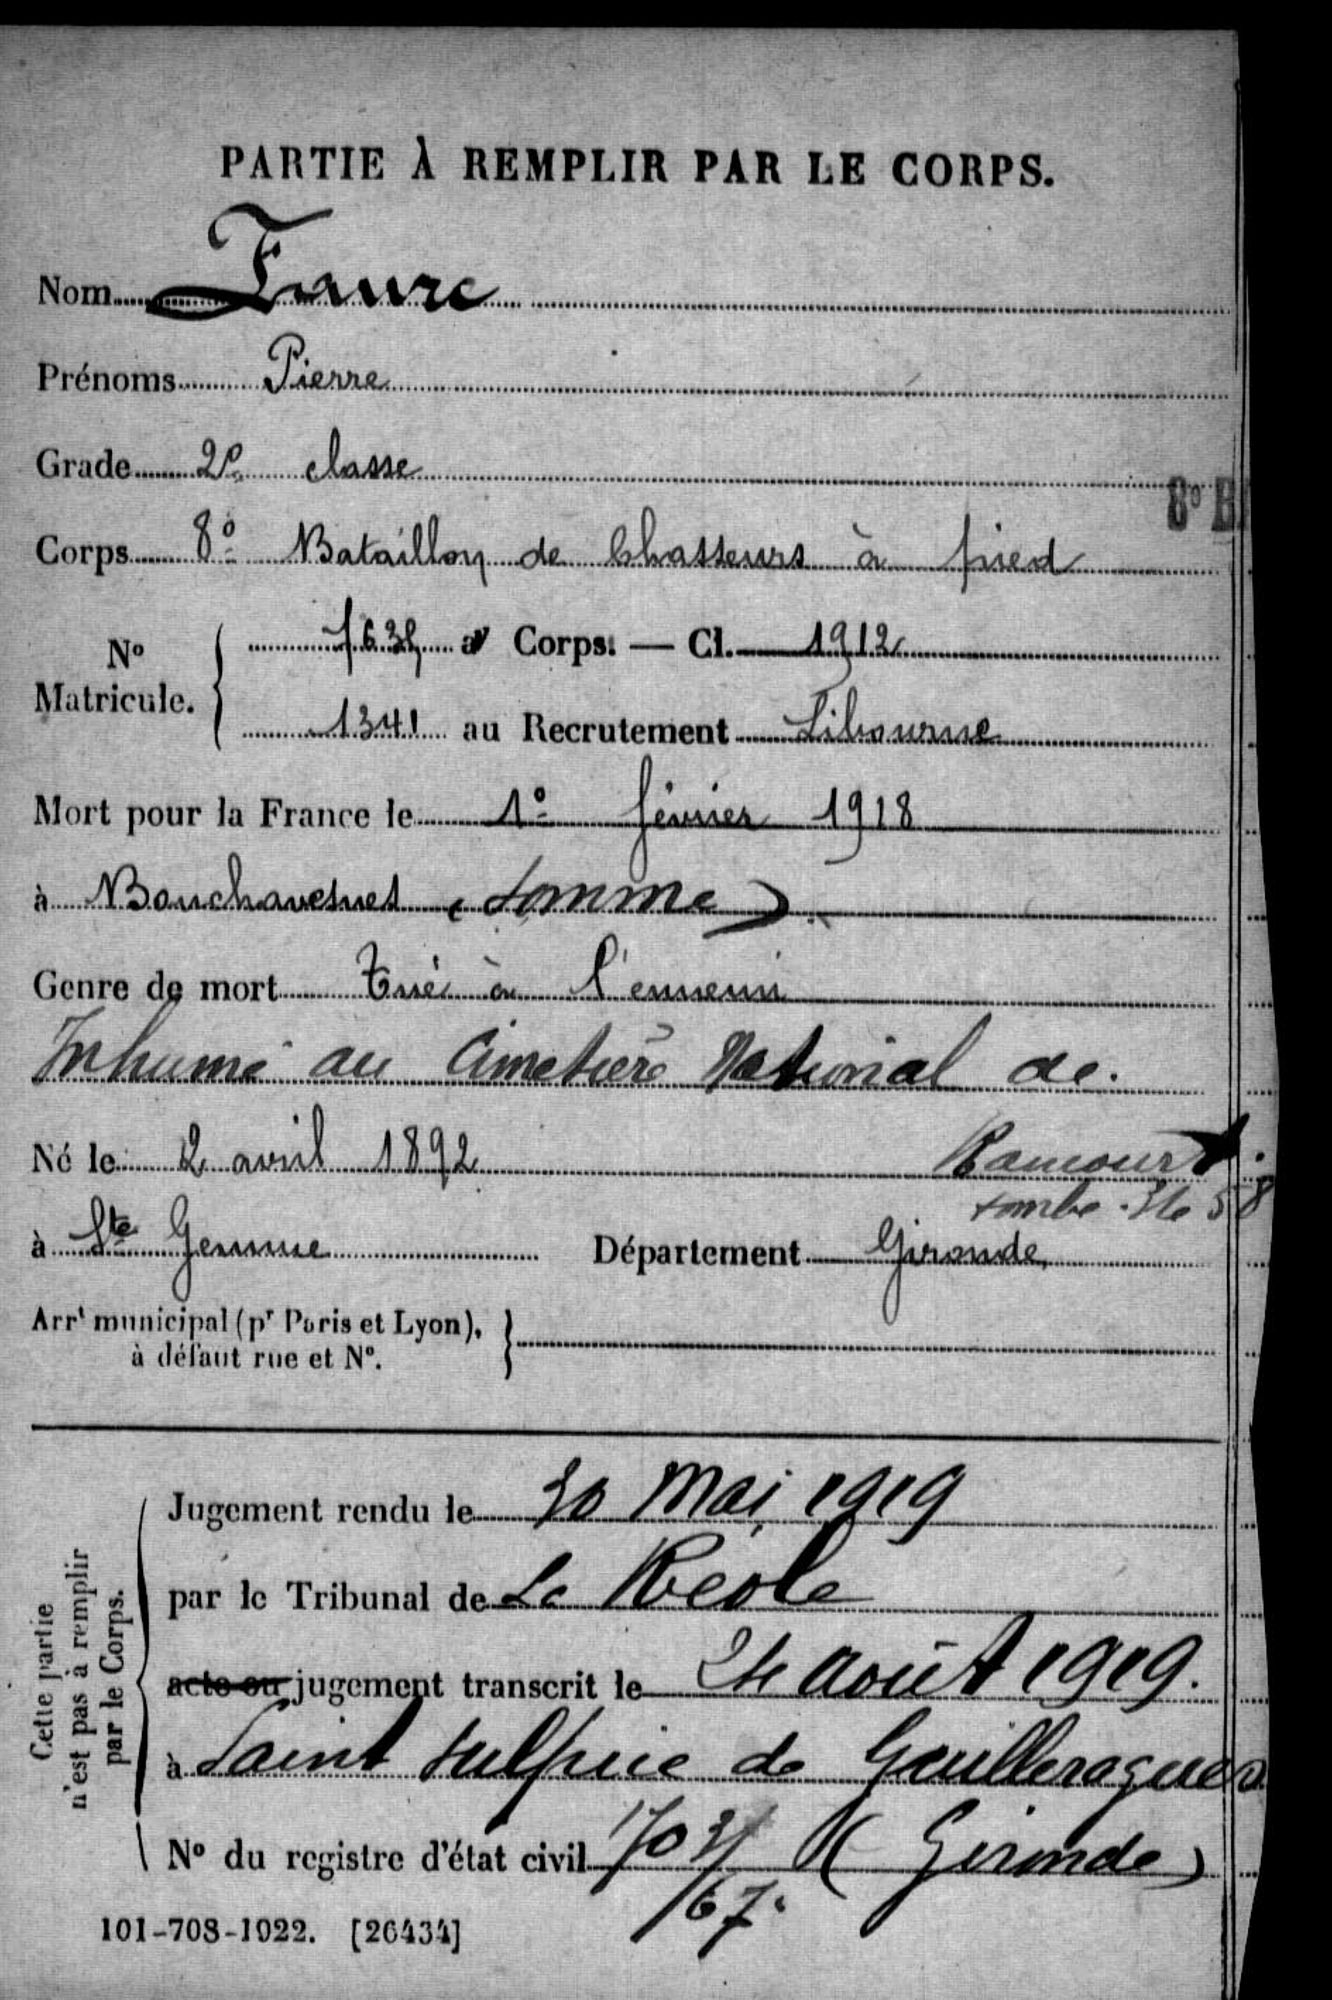 PARTIE À REMPLIR PAR LE CORPS.
Nom Faure
Prénoms Pierre
Grade 2e classe
8º B
Corps 8º Bataillon de Chasseurs à pied
Nº Matricule. { au Corps. — Cl. 1912
1341 au Recrutement Libourne
Mort pour la France le 1º février 1918
à Bouchavesnes (Somme)
Genre de mort Tué à l'ennemi
Inhumé au Cimetière National de.
Né le 2 avril 1892 Rancourt.
tombe
à Ste Gemme Département Gironde
Arrt municipal (pr Paris et Lyon), }
à défaut rue et Nº.
Cette partie
n'est pas à remplir
par le Corps.
Jugement rendu le 30 Mai 1919
par le Tribunal de La Réole
acte ou jugement transcrit le 24 août 1919.
à Saint Sulpice de Guilleragues
Nº du registre d'état civil (Gironde)
67.
101-708-1922. [26434]